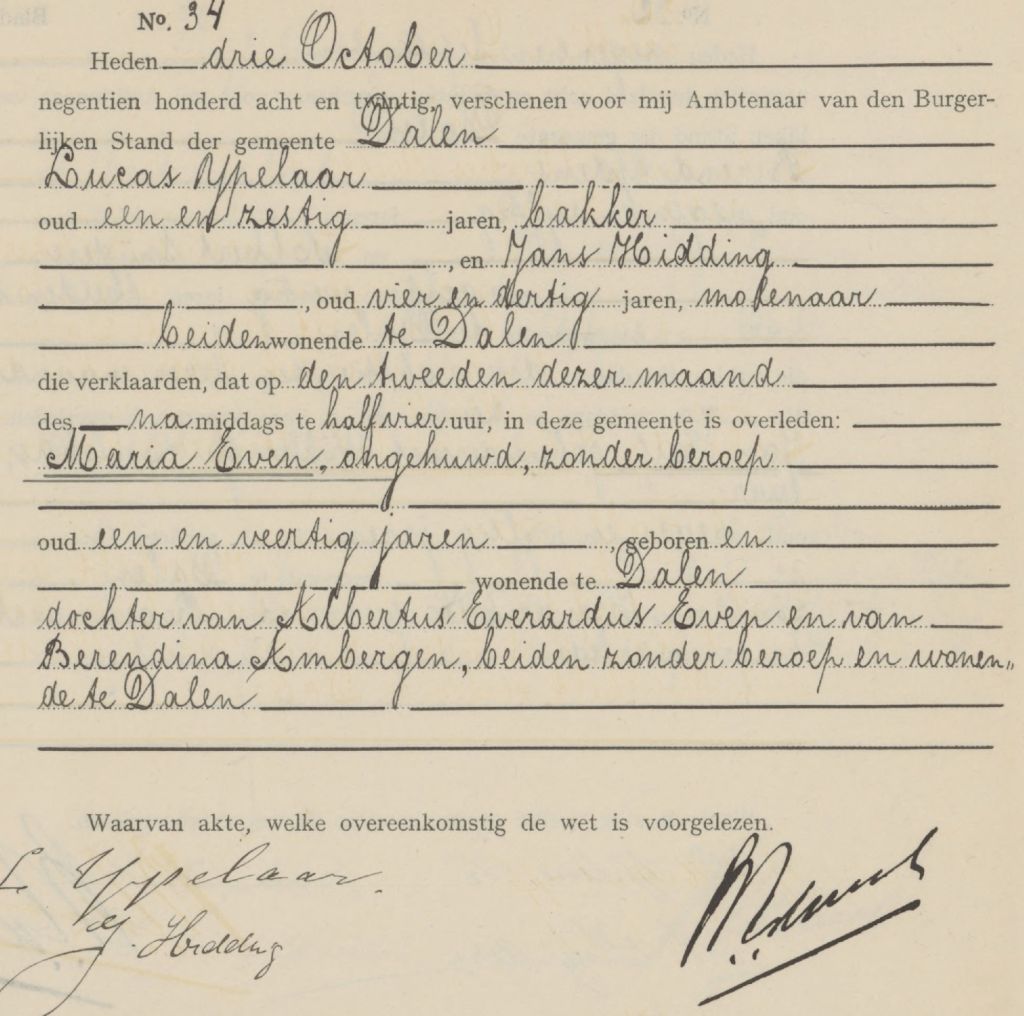 No. 34
Heden drie October
negentien honderd acht en twintig, verschenen voor mij Ambtenaar van den Burger-
lijken Stand der gemeente Dalen
Lucas Ypelaar
oud een en zestig jaren, bakker
, en Jans Hidding
, oud vier en dertig jaren, molenaar
beiden wonende te Dalen
die verklaarden, dat op den tweeden dezer maand
des na middags te half vier uur, in deze gemeente is overleden:
Maria Even, ongehuwd, zonder beroep
oud een en veertig jaren, geboren en
wonende te Dalen
dochter van Albertus Everardus Even en van
Berendina Ambergen, beiden zonder beroep en wonen„
de te Dalen
Waarvan akte, welke overeenkomstig de wet is voorgelezen.
L Ypelaar.
J. Hidding